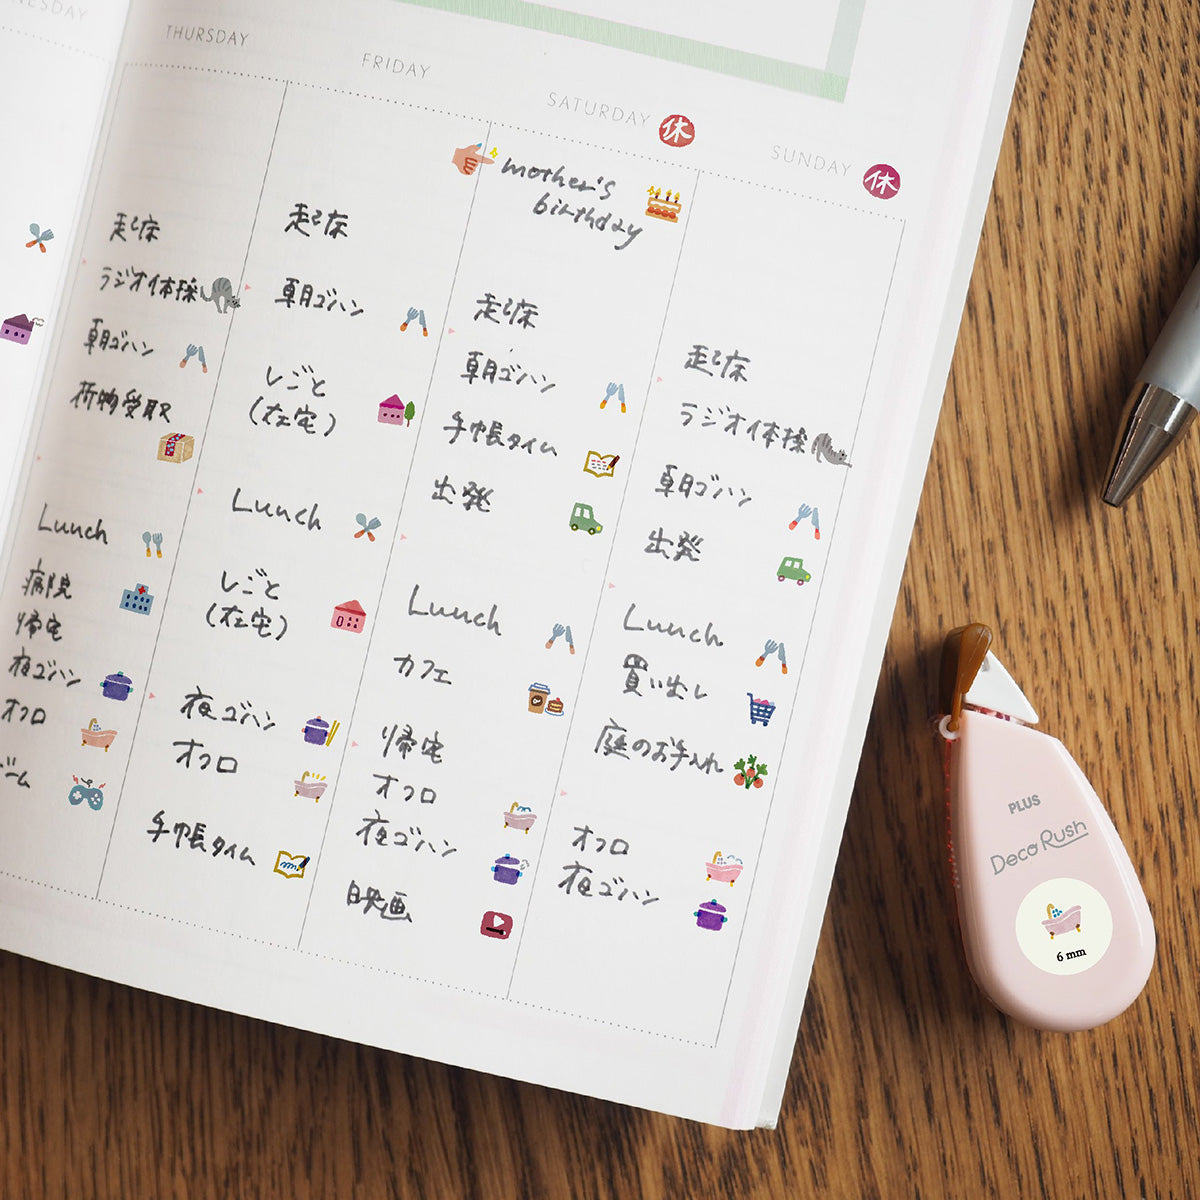 THURSDAY
起床
ラジオ体操
朝ゴハン
荷物受取
Lunch
病院
帰宅
夜ゴハン
オフロ
ゲーム
FRIDAY
起床
朝ゴハン
しごと
(在宅)
Lunch
しごと
(在宅)
夜ゴハン
オフロ
手帳タイム
SATURDAY 休
mother's
birthday
起床
朝ゴハン
手帳タイム
出発
Lunch
カフェ
帰宅
オフロ
夜ゴハン
映画
SUNDAY 休
起床
ラジオ体操
朝ゴハン
出発
Lunch
買い出し
庭のお手入れ
オフロ
夜ゴハン
PLUS
Deco Rush
6 mm